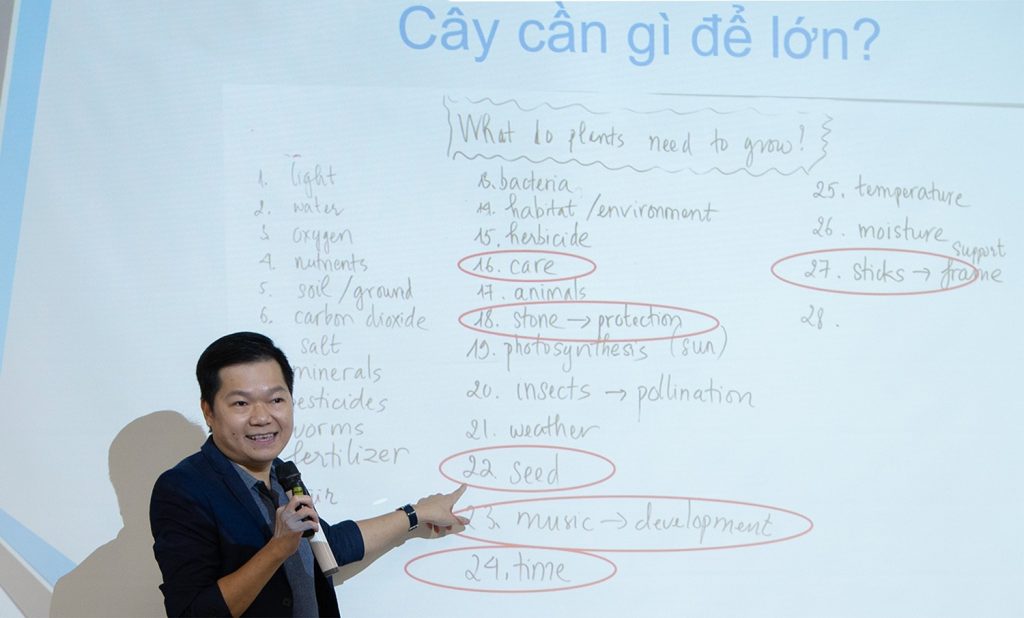 Cây cần gì để lớn?
What do plants need to grow?
1. light
2. water
3. oxygen
4. nutrients
5. soil / ground
6. carbon dioxide
salt
minerals
pesticides
worms
fertilizer
air
13. bacteria
14. habitat / environment
15. herbicide
16. care
17. animals
18. stone → protection
19. photosynthesis (sun)
20. insects → pollination
21. weather
22 seed
23. music → development
24. time
25. temperature
26. moisture
support
27. sticks → frame
28.